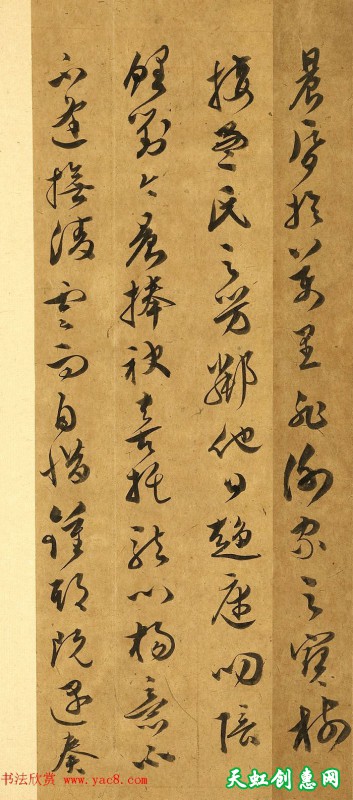 晨昏於万里非謝家之寶樹
接孟氏之芳鄰他日趨庭叨陪
鯉對今晨捧袂喜托龍門楊意不
不逢撫凌雲而自惜鍾期既遇奏
书法欣赏 www.yac8.com
天虹创惠网